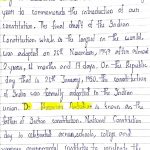 year to commemorate the introduction of our
constitution. The final draft of the Indian
Constitution which is the longest in the world
was adopted on 26th November, 1949 after almost
2 years, 11 months and 17 days. On the Republic
day that is 26th January, 1950. the constitution
of India was formally adopted in the Indian
union. Dr. is known as the
father of Indian constitution. National Constitution
day is celebrated across schools, colleges and
various governmental institutes to